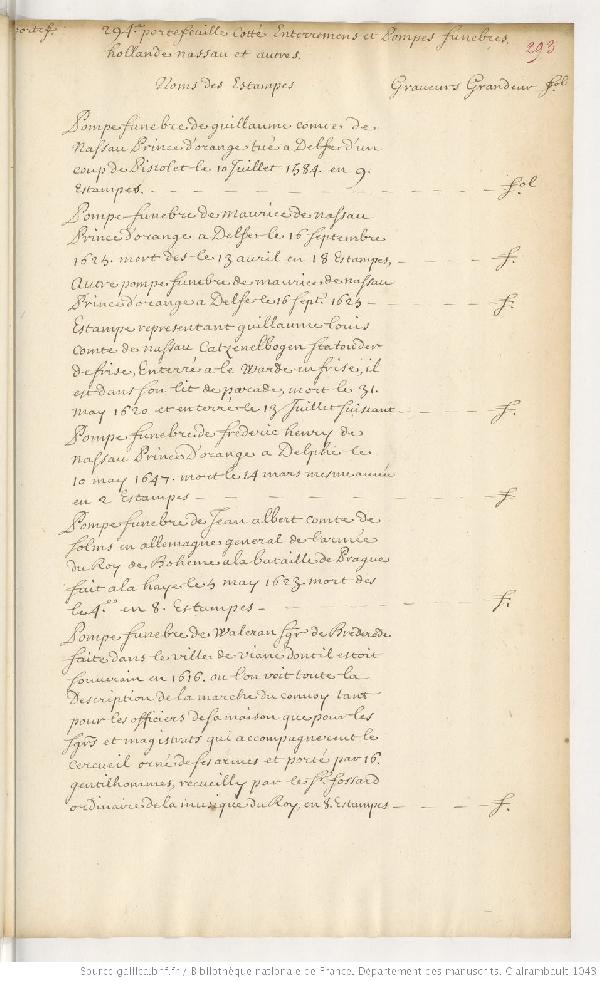 portef. 294.e portefeuille Cotté Enterremens et Pompes funebres.
293
hollande nassau et autres.
Noms des Estampes Graveurs Grandeur fol
Pompe funebre de guillaume comte de
Nassau Prince d'orange tué a Delfe d'un
coup de Pistolet le 10 Juillet 1584. en 9.
Estampes. fol
Pompe funebre de maurice de nassau
Prince d'orange a Delfe le 16 septembre
1625. mort des le 23 avril en 18 Estampes, f.
Autre pompe funebre de maurice de nassau
Prince d'orange a Delfe le 16 sept. 1625 f.
Estampe representant guillaume Louis
comte de nassau Catzenelbogen statouder
de frise, Enterré a le Warde en frise, il
est dans son lit de parade, mort le 31.
may 1620 et enterré le 13 Juillet suivant f.
Pompe funebre de frederic henry de
nassau Prince d'orange a Delphe le
10 may 1647. mort le 14 mars mesme année
en 2 Estampes f
Pompe funebre de Jean albert comte de
solms en allemagne general de l'armée
du Roy de Boheme a la bataille de Prague
fait a la haye le 5 may 1623 mort des
le 4.eo en 8. Estampes f.
Pompe funebre de Waleran sgr de Brederode
faite dans le ville de viane dont il estoit
souverain en 1616. ou l'on voit toute la
Description de la marche du convoy tant
pour les officiers de sa maison que pour les
sgrs et magistrats qui accompagnerent le
cercueil orné de ses armes et porté par 16.
gentilhommes, recueilly par le Sr. fossard
ordinaire de la musique du Roy, en 8 Estampes f.
Source gallica.bnf.fr / Bibliothèque nationale de France. Département des manuscrits. Clairambault 1043